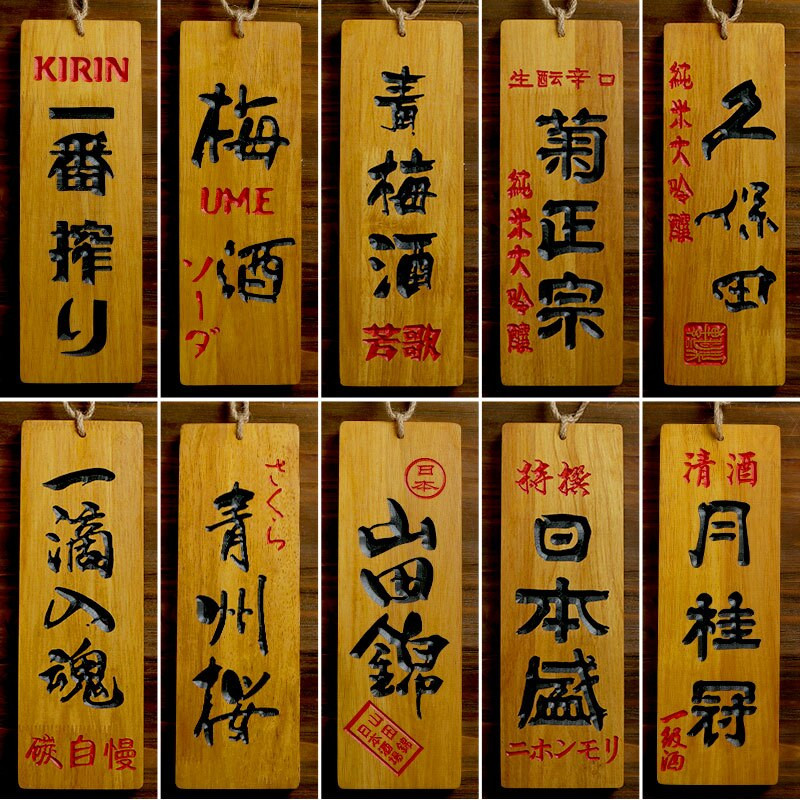 KIRIN
一番搾り
梅
UME
酒
ソーダ
青梅酒
若歌
生酛辛口
菊正宗
純米大吟醸
純米大吟醸
久保田
一滴入魂
碳自慢
さくら
青州桜
日本
山田錦
山田錦
日本酒場
特撰
日本盛
ニホンモリ
清酒
月桂冠
一級酒